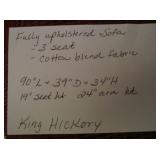 Fully upholstered Sofa
- 3 seat
- cotton blend fabric
90"L = 39"D = 34"H
19" seat ht 24" arm ht
King Hickory